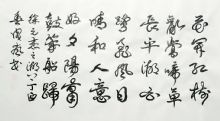 花開紅樹
亂鶯啼草
長平湖白
鷺飛風日
晴和人意
好夕陽簫
鼓幾船歸
徐元杰之湖上丁酉